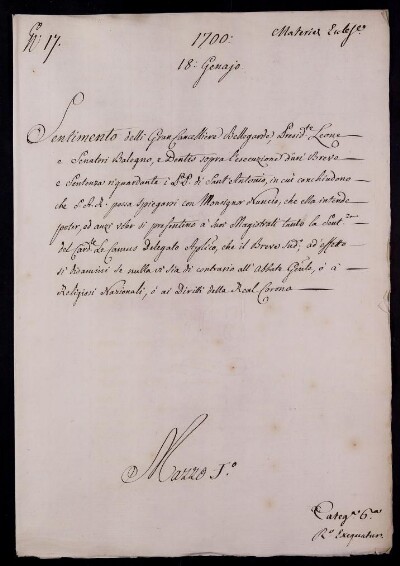 N.º 17.
1700:
Materie Eccles.e
18 Genajo
Sentimento delli Gran Cancelliere Bellegarde, Presid.te Leone
e Senatori Balegno, e Dentis sopra l'esecuzione d'un Breve
e Sentenza riguardante i P.P. di Sant'Antonio, in cui conchiudono
che S.A.R. possa spiegarsi con Monsignor Nuncio, che ella intende
poter, ed anzi voler si presentino a suoi Magistrati tanto la Sent.za
del Card.le Le Camus Delegato Ap.lico, che il Breve sud.º ad effetto
di esaminare se nulla vi sia di contrario all'Abbate Gentile, ò à
Religiosi Nazionali, ò ai Diritti della Real Corona
Mazzo I.º
Categ.a 6.a
R.º Exequatur.